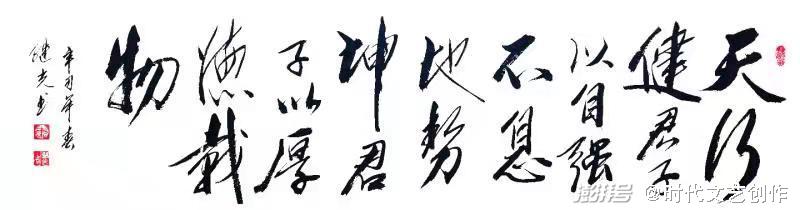 天行
健君子
以自强
不息
地勢
坤君
子以厚
德載
物
辛丑年春
继光书
澎湃号 @时代文艺创作